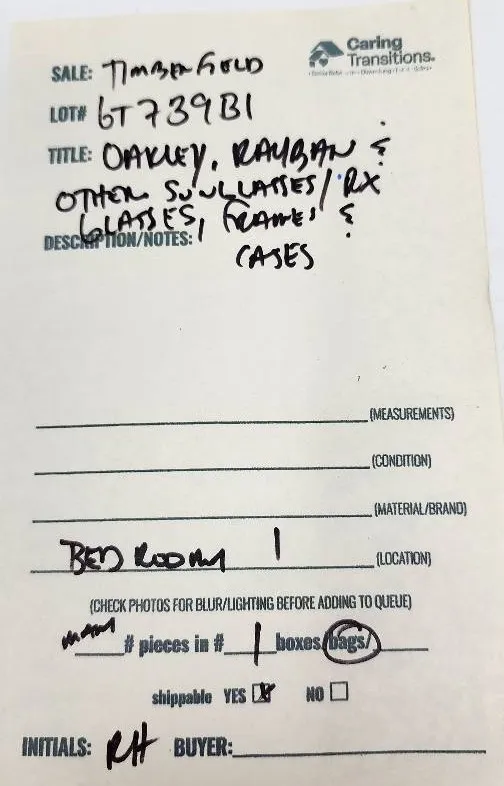 Caring
Transitions.
SALE: TIMBERFIELD
LOT# GT739B1
TITLE: OAKLEY, RAYBAN &
OTHER SUNGLASSES/RX
GLASSES, FRAMES &
DESCRIPTION/NOTES:
CASES
(MEASUREMENTS)
(CONDITION)
(MATERIAL/BRAND)
BEDROOM 1 (LOCATION)
(CHECK PHOTOS FOR BLUR/LIGHTING BEFORE ADDING TO QUEUE)
MANY # pieces in # 1 boxes/bags/
shippable YES X NO
INITIALS: RH BUYER: